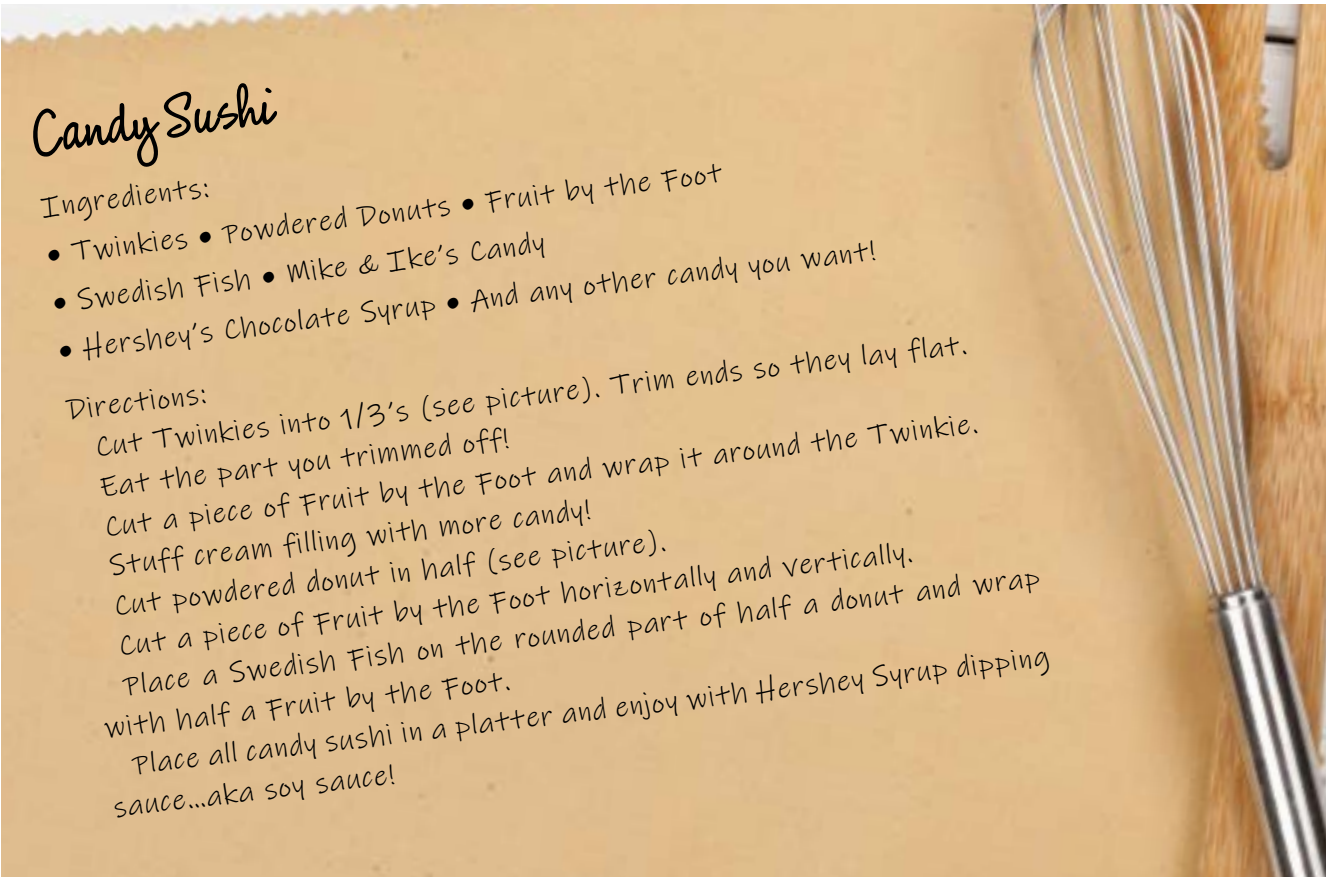 Candy Sushi
Ingredients:
• Twinkies • Powdered Donuts • Fruit by the Foot
• Swedish Fish • Mike & Ike's Candy
• Hershey's Chocolate Syrup • And any other candy you want!
Directions:
Cut Twinkies into 1/3's (see picture). Trim ends so they lay flat.
Eat the part you trimmed off!
Cut a piece of Fruit by the Foot and wrap it around the Twinkie.
Stuff cream filling with more candy!
Cut powdered donut in half (see picture).
Cut a piece of Fruit by the Foot horizontally and vertically.
Place a Swedish Fish on the rounded part of half a donut and wrap
with half a Fruit by the Foot.
Place all candy sushi in a platter and enjoy with Hershey Syrup dipping
sauce...aka soy sauce!